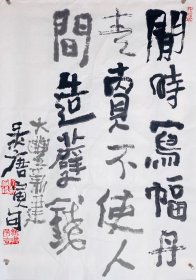 閒時寫幅丹
青賣不使人
間造孽錢
吳唐寅句